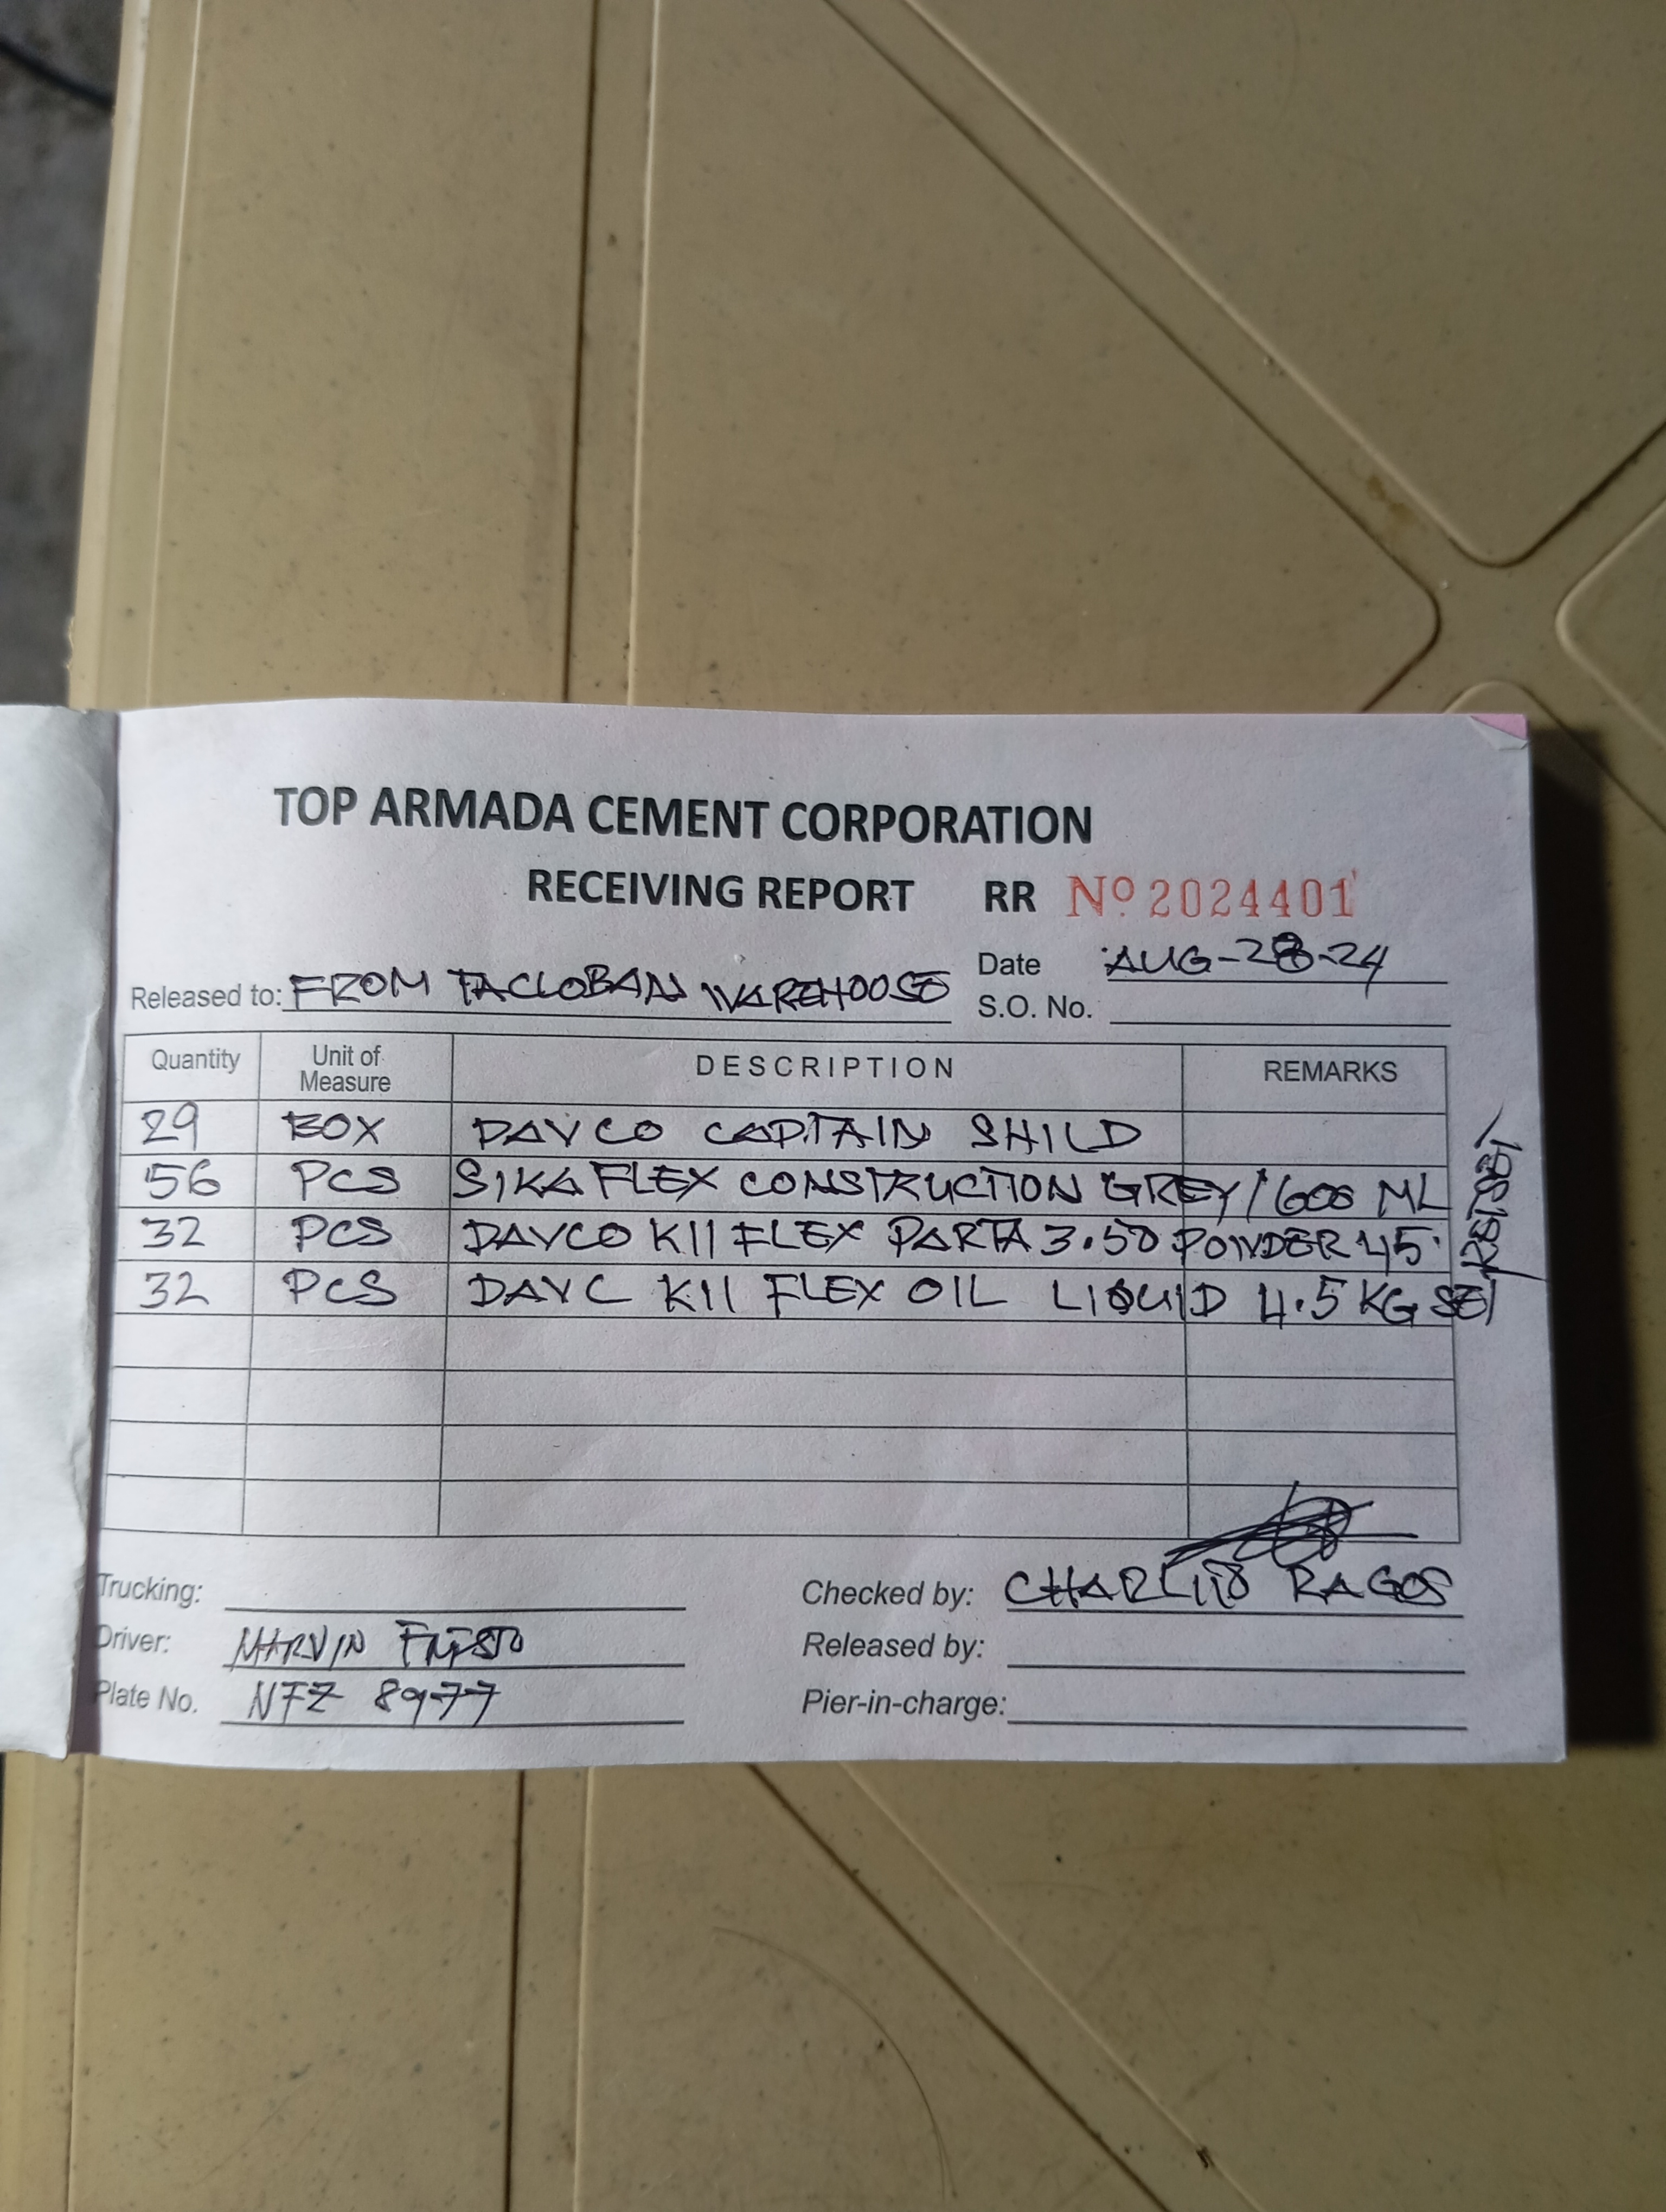 TOP ARMADA CEMENT CORPORATION
RECEIVING REPORT RR Nº 2024401
Released to: FROM TACLOBAN WAREHOOSE
Date AUG-28-24
S.O. No.
Quantity Unit of Measure DESCRIPTION REMARKS
29 BOX DAVCO CAPTAIN SHILD
56 PCS SIKA FLEX CONSTRUCTION GREY/600 ML
32 PCS DAVCO K11 FLEX PARTA 3.50 POWDER 45
32 PCS DAVC K11 FLEX OIL LIQUID 4.5 KG SET
Trucking:
Driver: MARVIN
Plate No. NFZ 8977
Checked by: CHARLIE RAGOS
Released by:
Pier-in-charge: